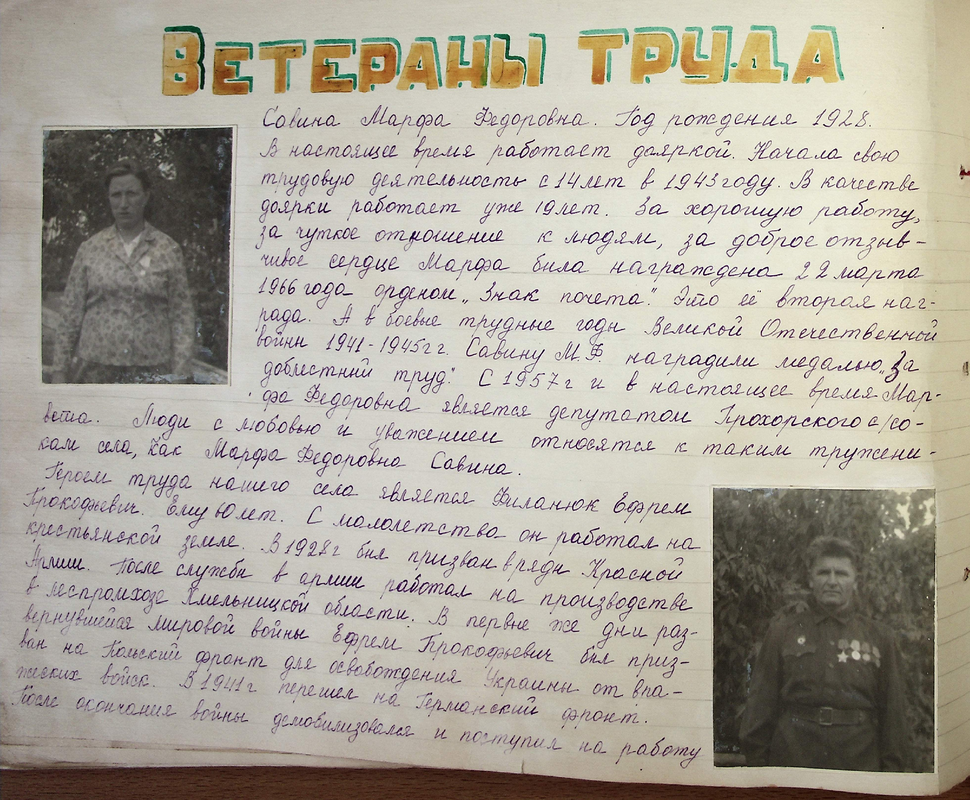 ВЕТЕРАНЫ ТРУДА
Савина Марфа Федоровна. Год рождения 1928.
В настоящее время работает дояркой. Начала свою
трудовую деятельность с 14 лет в 1943 году. В качестве
доярки работает уже 19 лет. За хорошую работу,
за чуткое отношение к людям, за доброе отзыв-
чивое сердце Марфа была награждена 22 марта
1966 года орденом „Знак почета". Это её вторая наг-
рада. А в боевые трудные годы Великой Отечественной
войны 1941-1945 г г. Савину М.Ф. наградили медалью „За
доблестный труд". С 1957 г и в настоящее время Мар-
фа Федоровна является депутатом Прохорского с/со-
вета. Люди с любовью и уважением относятся к таким тружени-
кам села, как Марфа Федоровна Савина.
Героем труда нашего села является Филанюк Ефрем
Прокофьевич. Ему лет. С малолетства он работал на
крестьянской земле. В 1928 г был призван в ряды Красной
Армии. После службы в армии работал на производстве
в леспромхозе Хмельницкой области. В первые же дни раз-
вернувшейся мировой войны Ефрем Прокофьевич был приз-
ван на Польский фронт для освобождения Украины от вра-
жеских войск. В 1941 г перешел на Германский фронт.
После окончания войны демобилизовался и поступил на работу